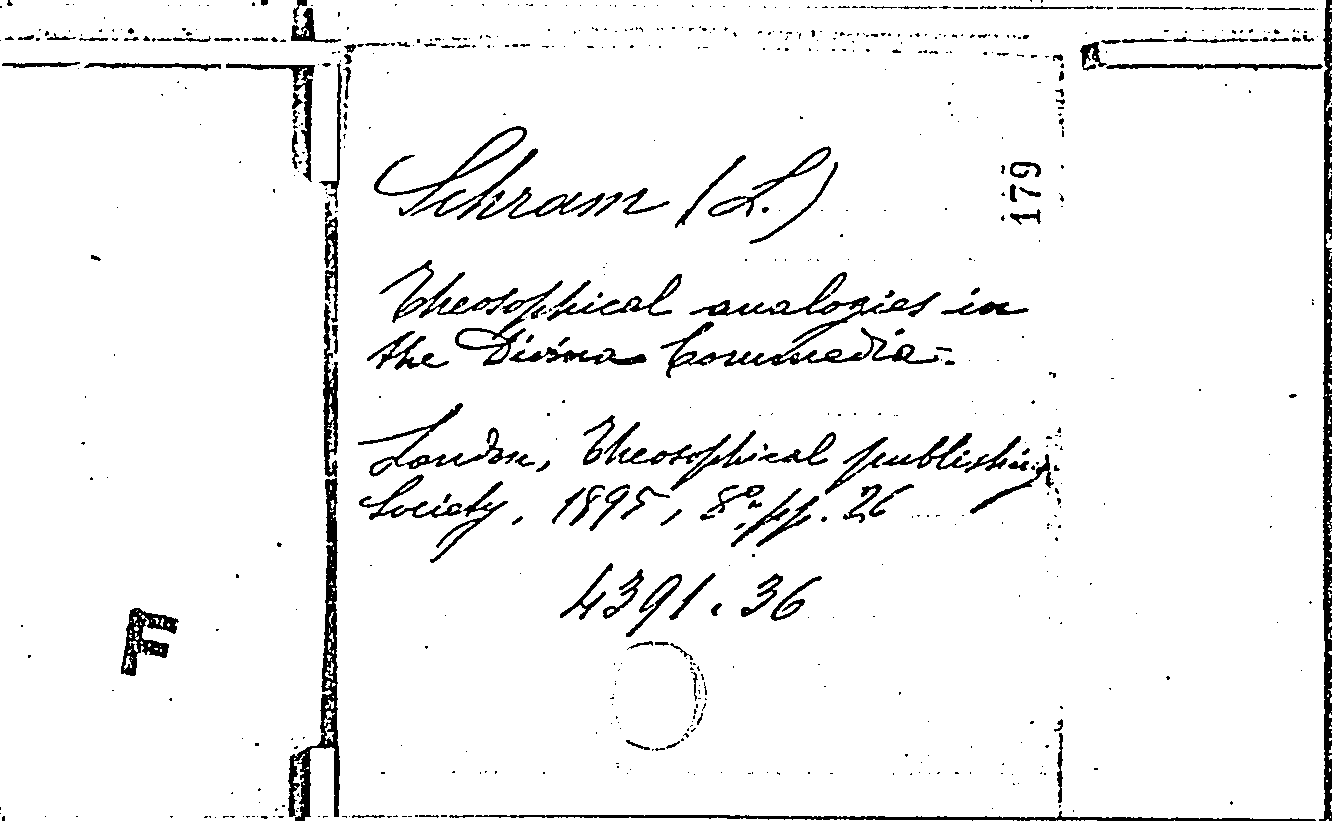 Schram (L.)
179
Theosophical analogies in
the Divina Commedia.-
London, Theosophical publishing
Society, 1895, 8°, pp. 26
4391.36
F